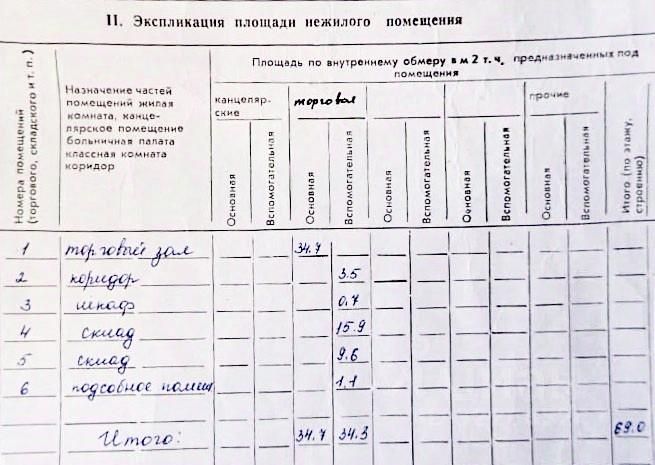 II. Экспликация площади нежилого помещения
Номера помещений (торгового, складского и т. п.)
Назначение частей
помещений жилая
комната, канце-
лярское помещение
больничная палата
классная комната
коридор
Площадь по внутреннему обмеру в м 2 т. ч. предназначенных под
помещения
канцеляр-
ские
торговая
прочие
Основная
Вспомогательная
Основная
Вспомогательная
Основная
Вспомогательная
Основная
Вспомогательная
Основная
Вспомогательная
Итого (по этажу, строению)
1 торговый зал 34.7
2 коридор 3.5
3 шкаф 0.7
4 склад 15.9
5 склад 9.6
6 подсобное помещ 1.1
Итого: 34.7 34.3 69.0